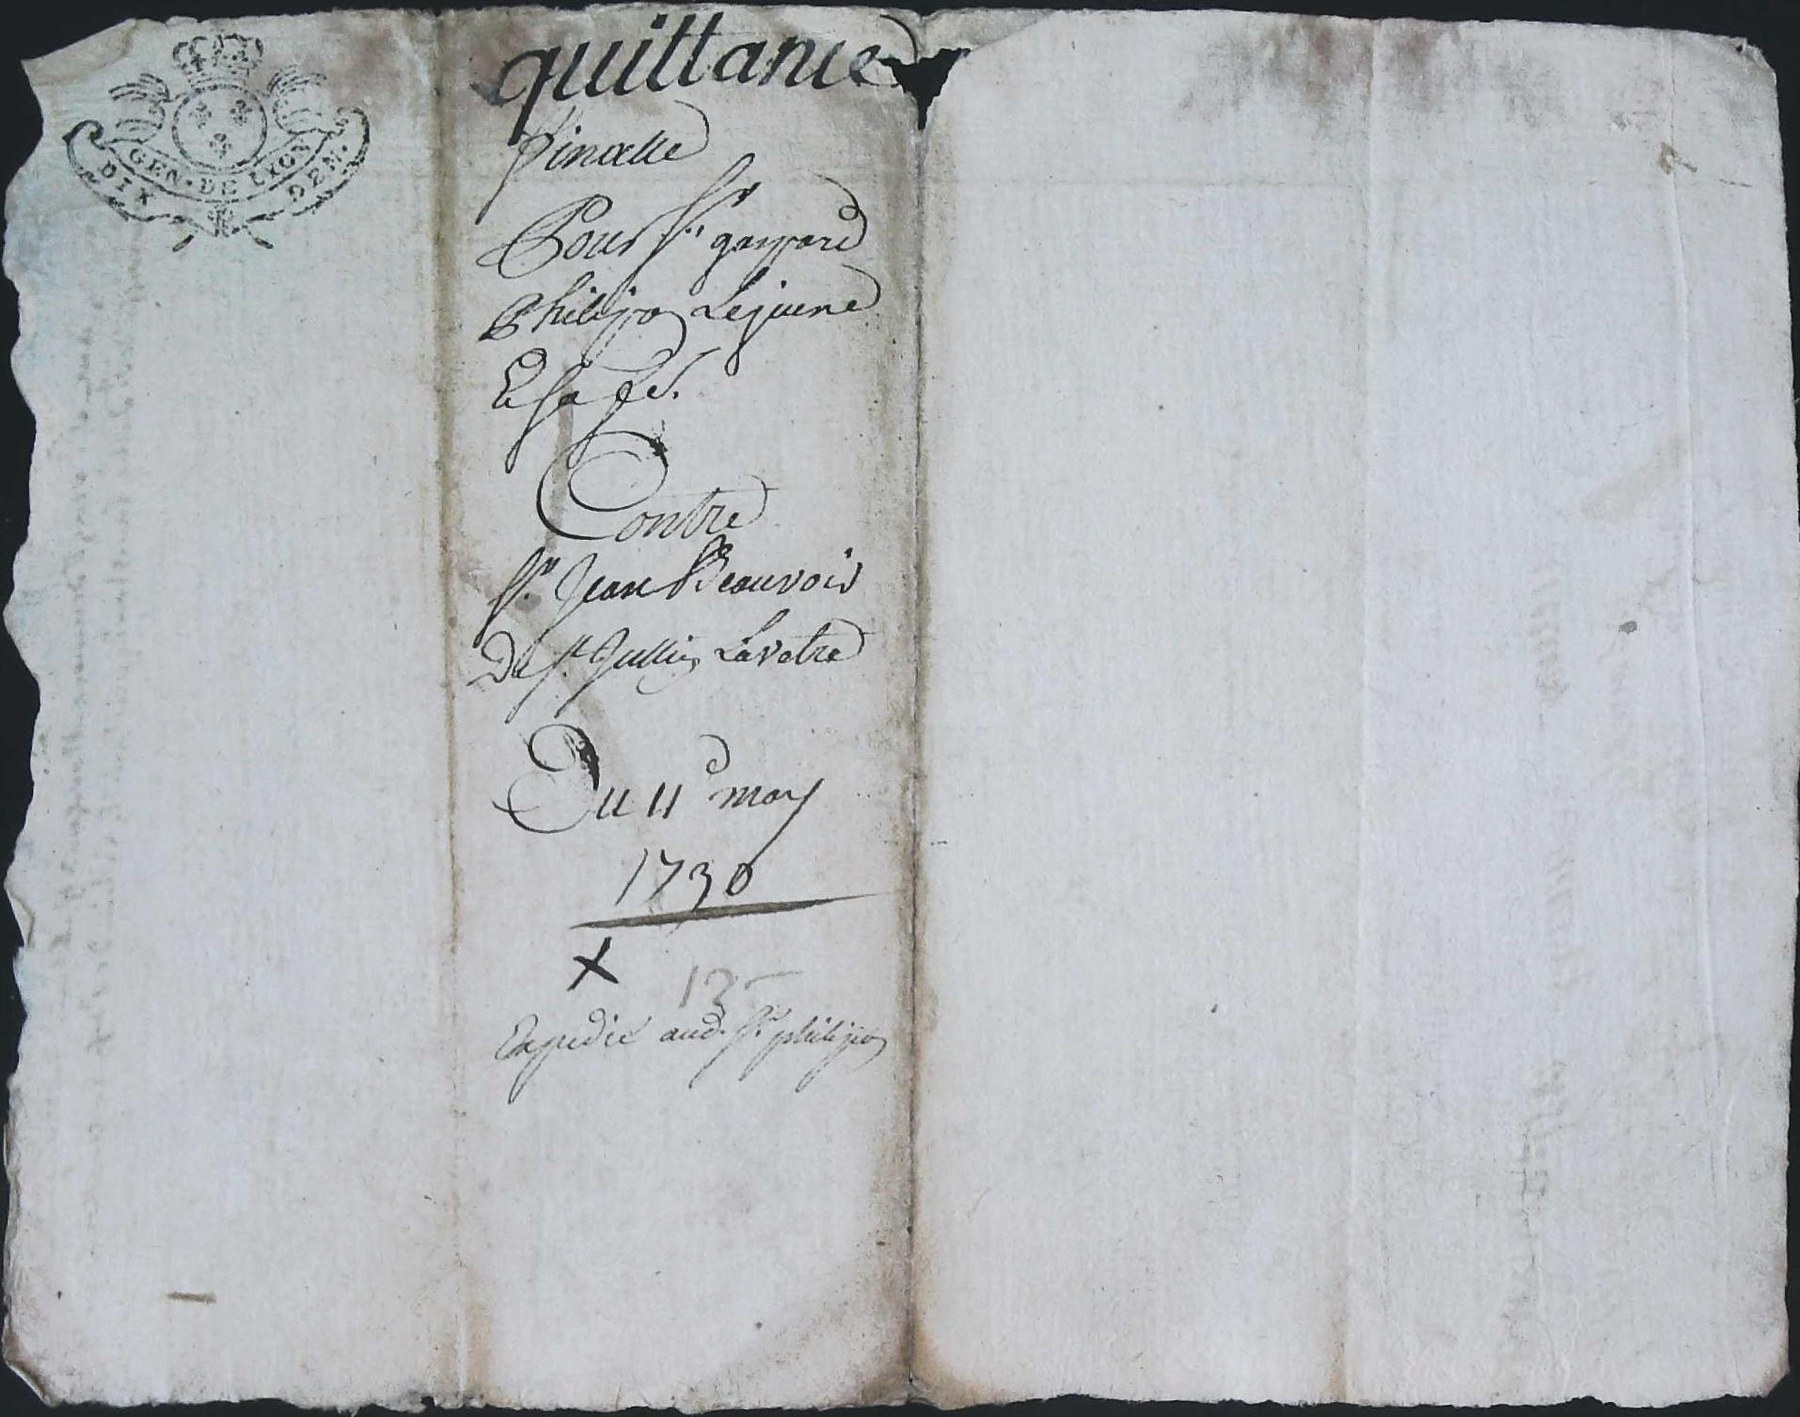 GEN. DE LYON
DIX DEN.
quittance
finalle
Pour Sr. gaspard
Philipon Lejeune
Et sa fe.
Contre
Sr. Jean Beauvois
De St. Jullien Lavetre
Du 11e may
1730
x 13
Expedié aud. Sr. philipon